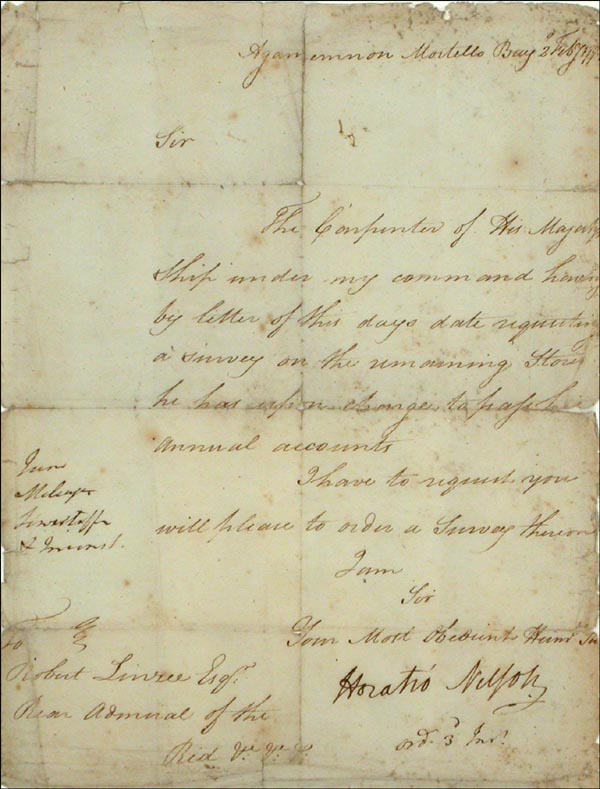 Agamemnon Mortello Bay 2d Feby
Sir
The Carpenter of His Majestys
Ship under my command having
by letter of this days date requesting
a survey on the remaining Stores
he has upon charge to pass his
annual accounts
I have to request you
will please to order a Survey thereon
Iam
Sir
Your Most Obedient Humb
Horatio Nelson
ord. 3d Inst.
June
Meleager
Lowestoffe
To
Robert Linzee Esqr.
Rear Admiral of the
Red &c &c &c